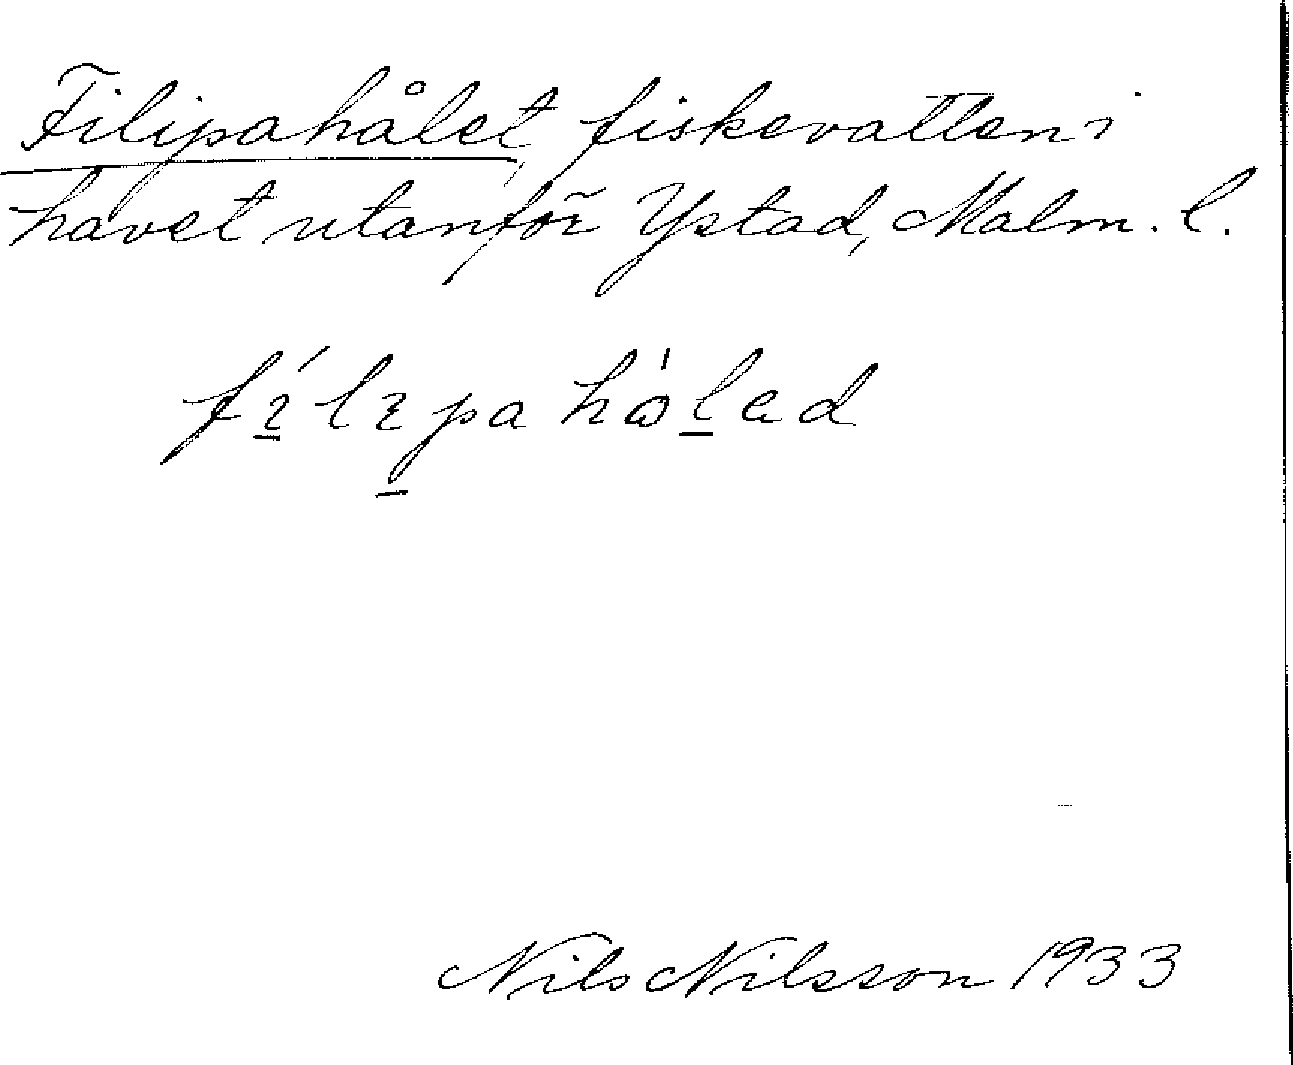 Filipahålet, fiskevatten i
havet utanför Ystad, Malm. l.
Nils Nilsson 1933